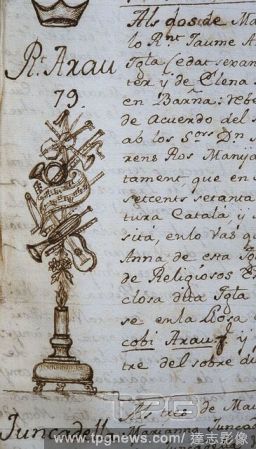 Als dos de Ma
lo Rnt Jaume A
Igla (edat sexan
ter y de Elena
en Barna: rebe
de Acuerdo del s
ab los Sors Dn
rens Ros Manja
tament, que en
setcents seranta
tura Catalá, y
sita, en lo vas q
Anna de esta Ig
de Religiosos E
closa dita Igla
se en la Lloga
cobi Arau, y
tre del sobre di
Rt. Arau
79.
Juncadell
Als tres de Ma
Marianna Juncad
TPG
www.tpgnews.com/達志影像